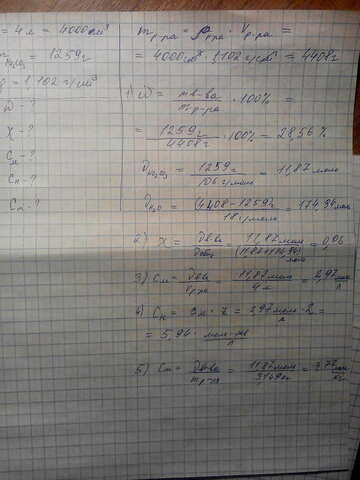 = 4 л = 4000 см³
Na₂CO₃ = 1259 г
= 1.102 г/см³
ω - ?
X - ?
Cм - ?
Cн - ?
Cm - ?
m р-ра = ρ р-ра · V р-ра =
= 4000 см³ · 1.102 г/см³ = 4408 г
1) ω = m в-ва / m р-ра · 100% =
= 1259 г / 4408 г · 100% = 28,56 %
= 1259 г / 106 г/моль = 11,87 моль
ν H₂O = (4408 - 1259) г / 18 г/моль = 174,94 моль
2) X = ν в-ва / ν общ = 11,87 моль / моль = 0,06
3) Cм = ν в-ва / V р-ра = 11,87 моль / 4 л = 2,97 моль/л
4) Cн = Cм · z = 2,97 моль/л · 2 =
= 5,94 моль-экв/л
5) Cm = ν в-ва / m р-ля = 11,87 моль / = моль/кг